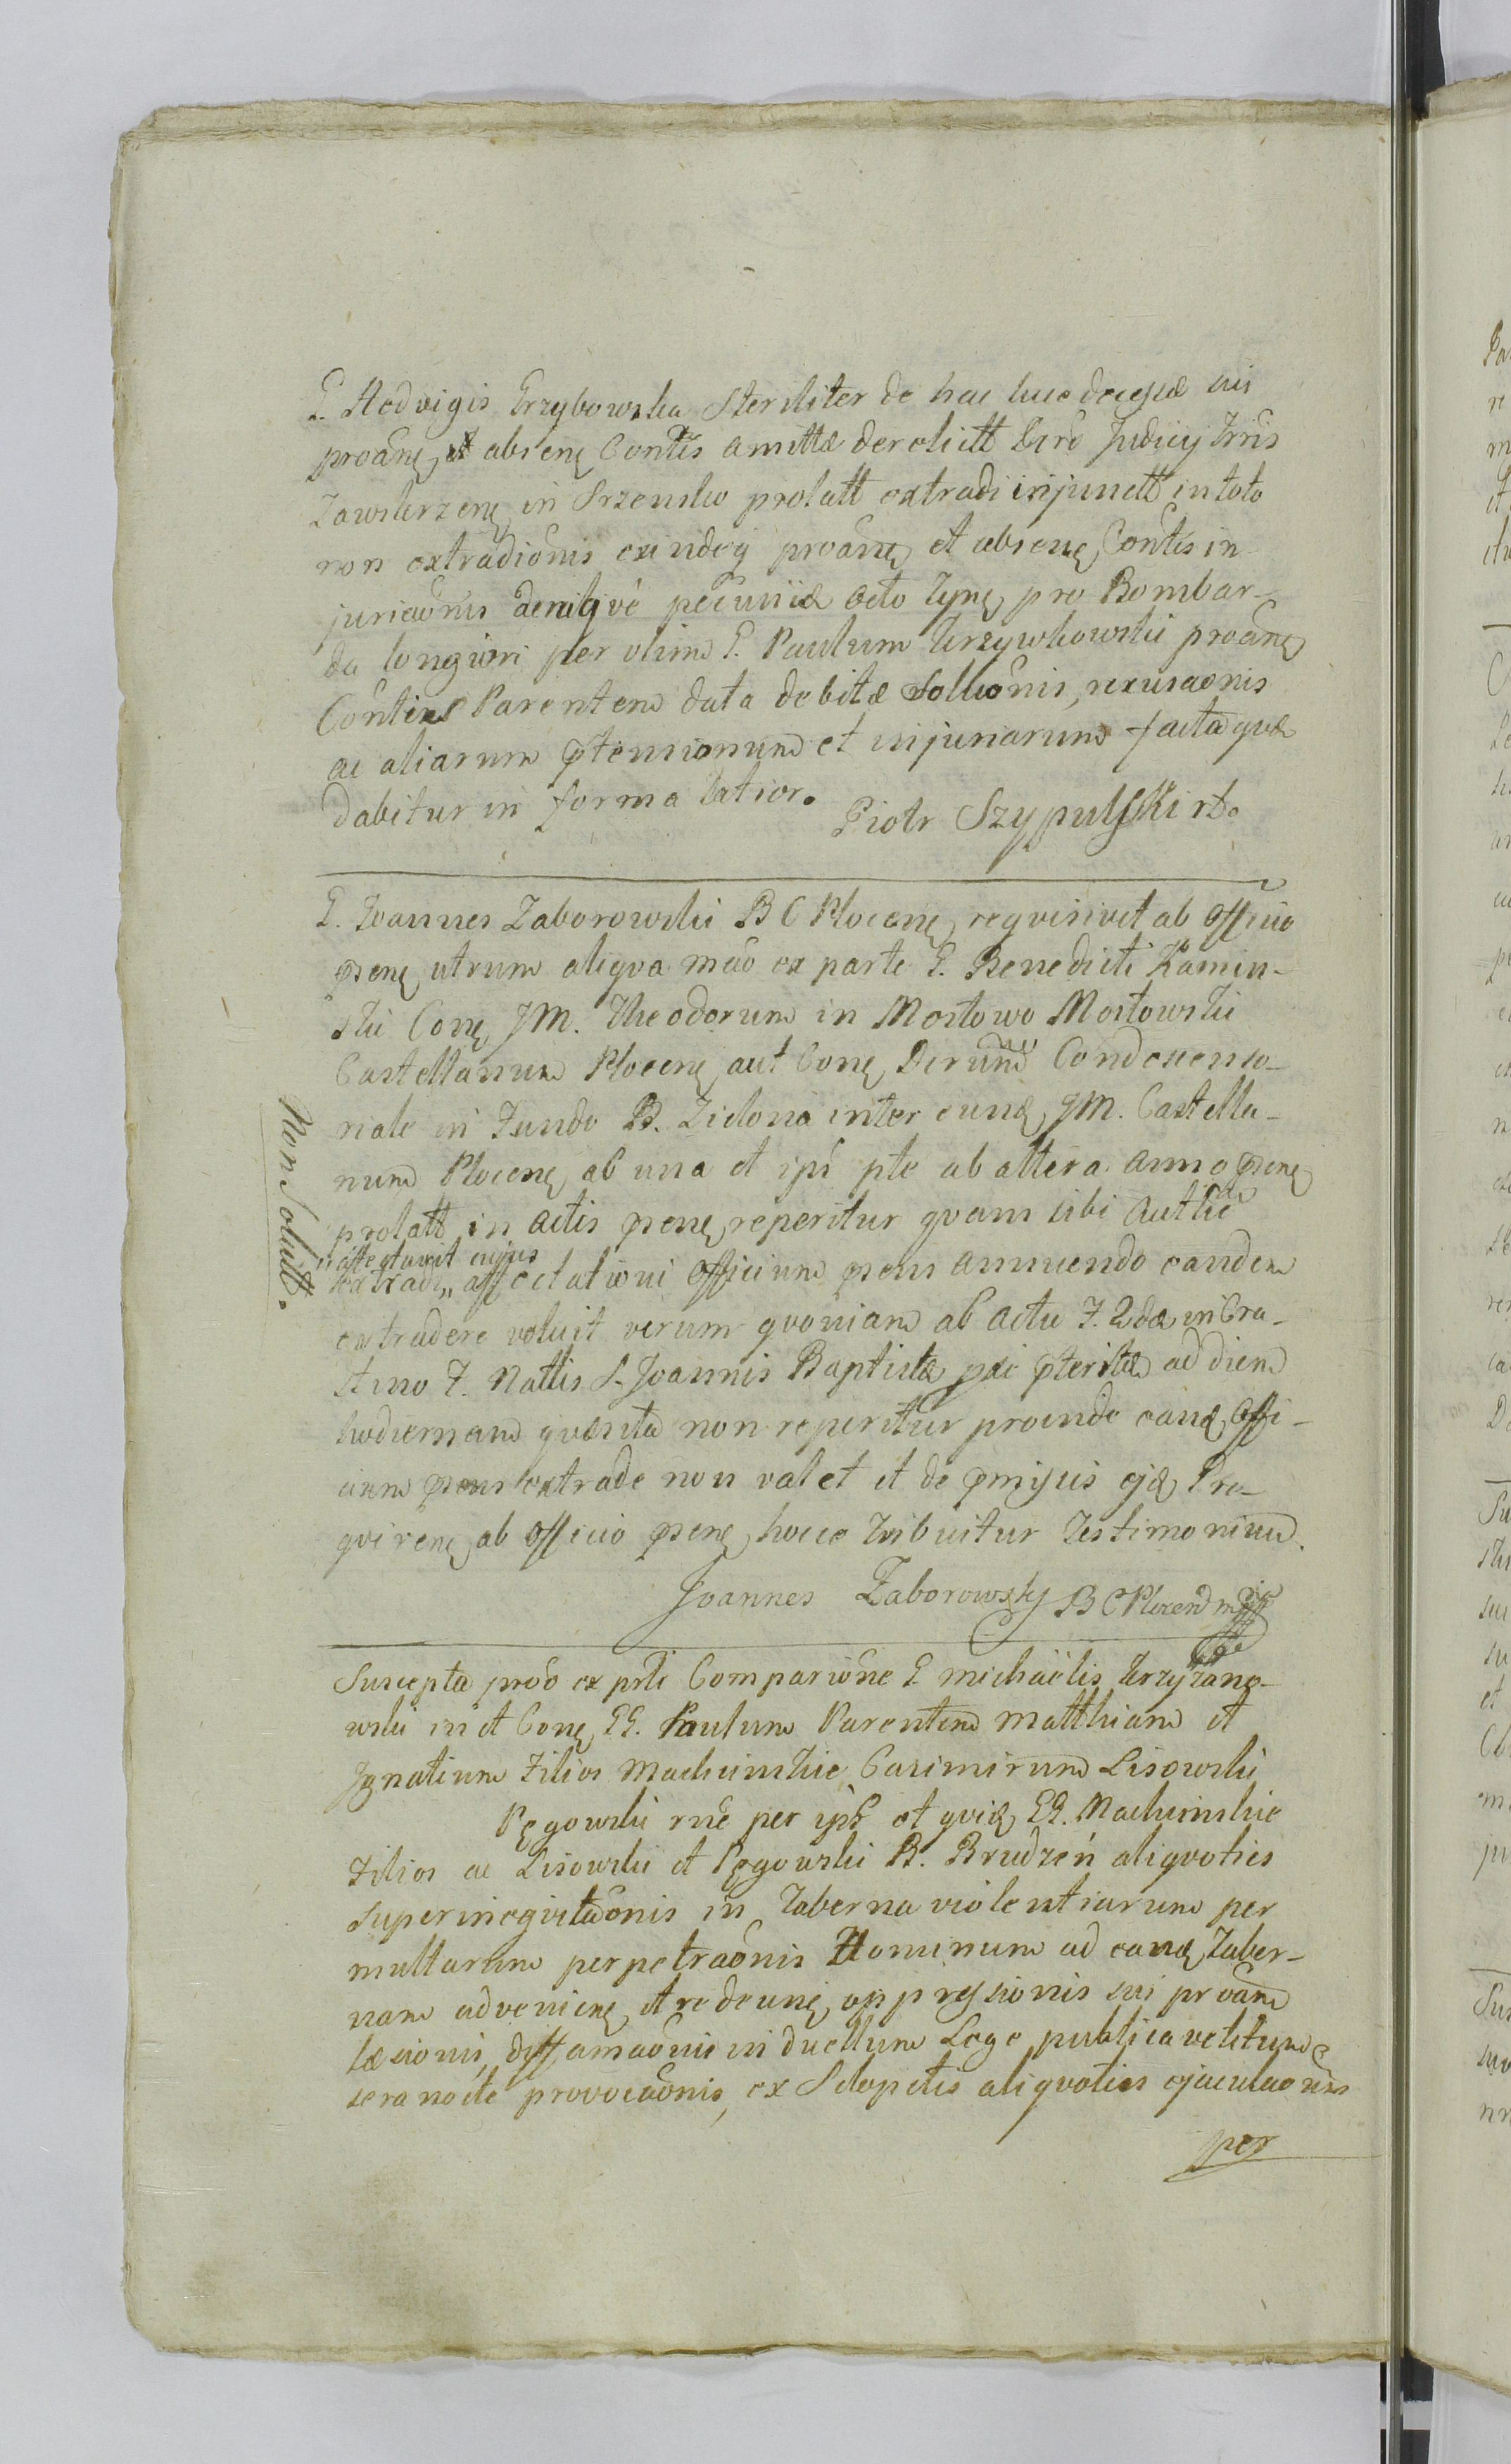 G. Hedvigis Grzybowska Steriliter de hac luce decessæ sui
proãnę et absenę Contis amittæ derelictt Dcro Judicij Trris
Zawskrzenę in Szrensko prolatt extradi injunctt in toto
non extradionis exindeq proãnę et absenę Contis in-
juriaõnis denique pecuniæ octo Tynę pro Bombar-
da longiori per olim G. Paulum Krzywkowski proãnę
Contis Parentem data debitæ Solluõnis, recusaõnis
ac aliarum ptensionum et injuriarum facta quæ
dabitur in forma latior.
Piotr Szypulski rt.
G. Joannes Zaborowski B C Plocenę requisivit ab Officio
psenę utrum aliqva mão ex parte G. Benedicti Kamin-
ski Conę JM. Theodorum in Mostowo Mostowski
Castellanum Plocenę aut Conę Dcrum Condescenso-
nale in Fundo B. Zielona inter eunę JM. Castella-
num Plocenę ab una et ipi pte ab altera anno psenę
prolatt in actis psenę reperitur qvam sibi Authce
extradi „affectavit cujus
affectationi Officium psens annuendo eandem
extradere voluit verum qvoniam ab actu F. 2dæ in Cra-
stino F. Nattis S. Joannis Baptistæ pxi pteritæ ad diem
hodiernam qvæsita non reperitur proinde eanę Offi-
cium psens extrade non valet et de pmissis eję Re-
qvirenę ab officio psenę hocce tribuitur Testimonium.
Joannes Zaborowsky B C Plocen mpp
Non Solutt.
Suscepta prõo ex prti Compariõne G. Michaelis Krzyżano-
wski in et Conę GG. Paulum Parentem Matthiam et
Ignatium Filios Machcinskie Casimirum Lisowski
Pęgowski rne per ips et qviæ GG. Machcinskie
Filios ac Lisowski et Pęgowski B. Brudzeń aliqvoties
superineqvitaõnis in Taberna violentiarum per
multarum perpetraõnis Hominum ad eanę Taber-
nam advenienę et redeunę oppressionis sui proãnę
læsionis, diffamaõnis in duellum Lege publica vetitum
sera nocte provocaõnis, ex Sclopetis aliqvoties ejaculaonis
per